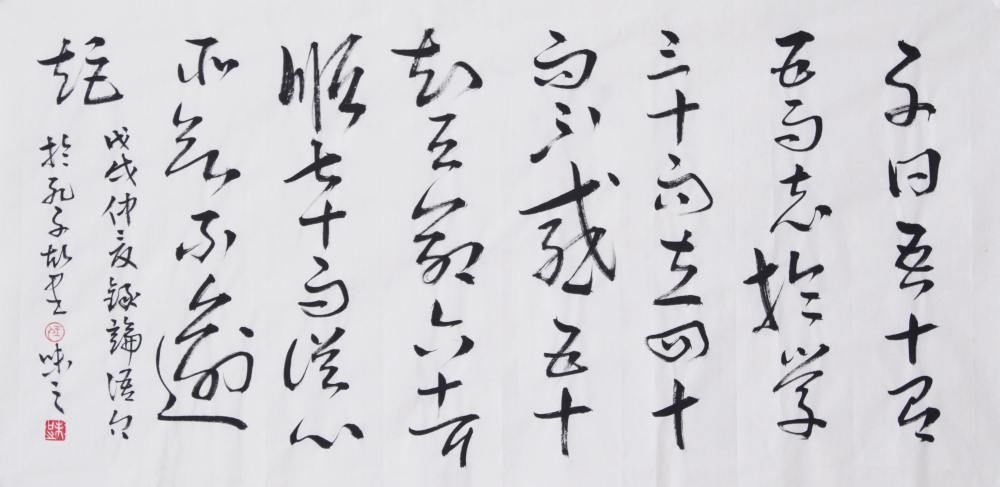 子曰吾十有
五而志於学
三十而立四十
而不惑五十
知天命六十耳
順七十而從心
所欲不逾
矩
戊戌仲夏錄論語句
於孔子故里 味之